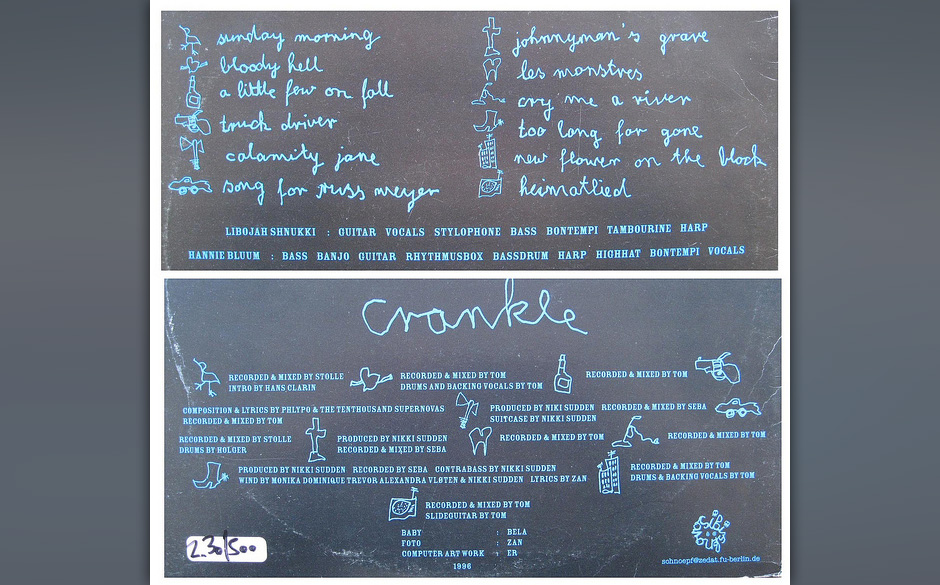 sunday morning
bloody hell
a little few on fall
truck driver
calamity jane
song for russ meyer
johnnyman's grave
les monstres
cry me a river
too long for gone
new flower on the block
heimatlied
LIBOJAH SHNUKKI : GUITAR VOCALS STYLOPHONE BASS BONTEMPI TAMBOURINE HARP
HANNIE BLUUM : BASS BANJO GUITAR RHYTHMUSBOX BASSDRUM HARP HIGHHAT BONTEMPI VOCALS
crankle
RECORDED & MIXED BY STOLLE
INTRO BY HANS CLARIN
RECORDED & MIXED BY TOM
DRUMS AND BACKING VOCALS BY TOM
RECORDED & MIXED BY TOM
COMPOSITION & LYRICS BY PHLYPO & THE TENTHOUSAND SUPERNOVAS
RECORDED & MIXED BY TOM
PRODUCED BY NIKI SUDDEN RECORDED & MIXED BY SEBA
SUITCASE BY NIKKI SUDDEN
RECORDED & MIXED BY STOLLE
DRUMS BY HOLGER
PRODUCED BY NIKKI SUDDEN
RECORDED & MIXED BY SEBA
RECORDED & MIXED BY TOM
RECORDED & MIXED BY TOM
PRODUCED BY NIKKI SUDDEN RECORDED BY SEBA CONTRABASS BY NIKKI SUDDEN
WIND BY MONIKA DOMINIQUE TREVOR ALEXANDRA VLØTEN & NIKKI SUDDEN LYRICS BY ZAN
RECORDED & MIXED BY TOM
DRUMS & BACKING VOCALS BY TOM
RECORDED & MIXED BY TOM
SLIDEGUITAR BY TOM
BABY : BELA
FOTO : ZAN
COMPUTER ART WORK : ER
1996
230/500
schnoepf@zedat.fu-berlin.de